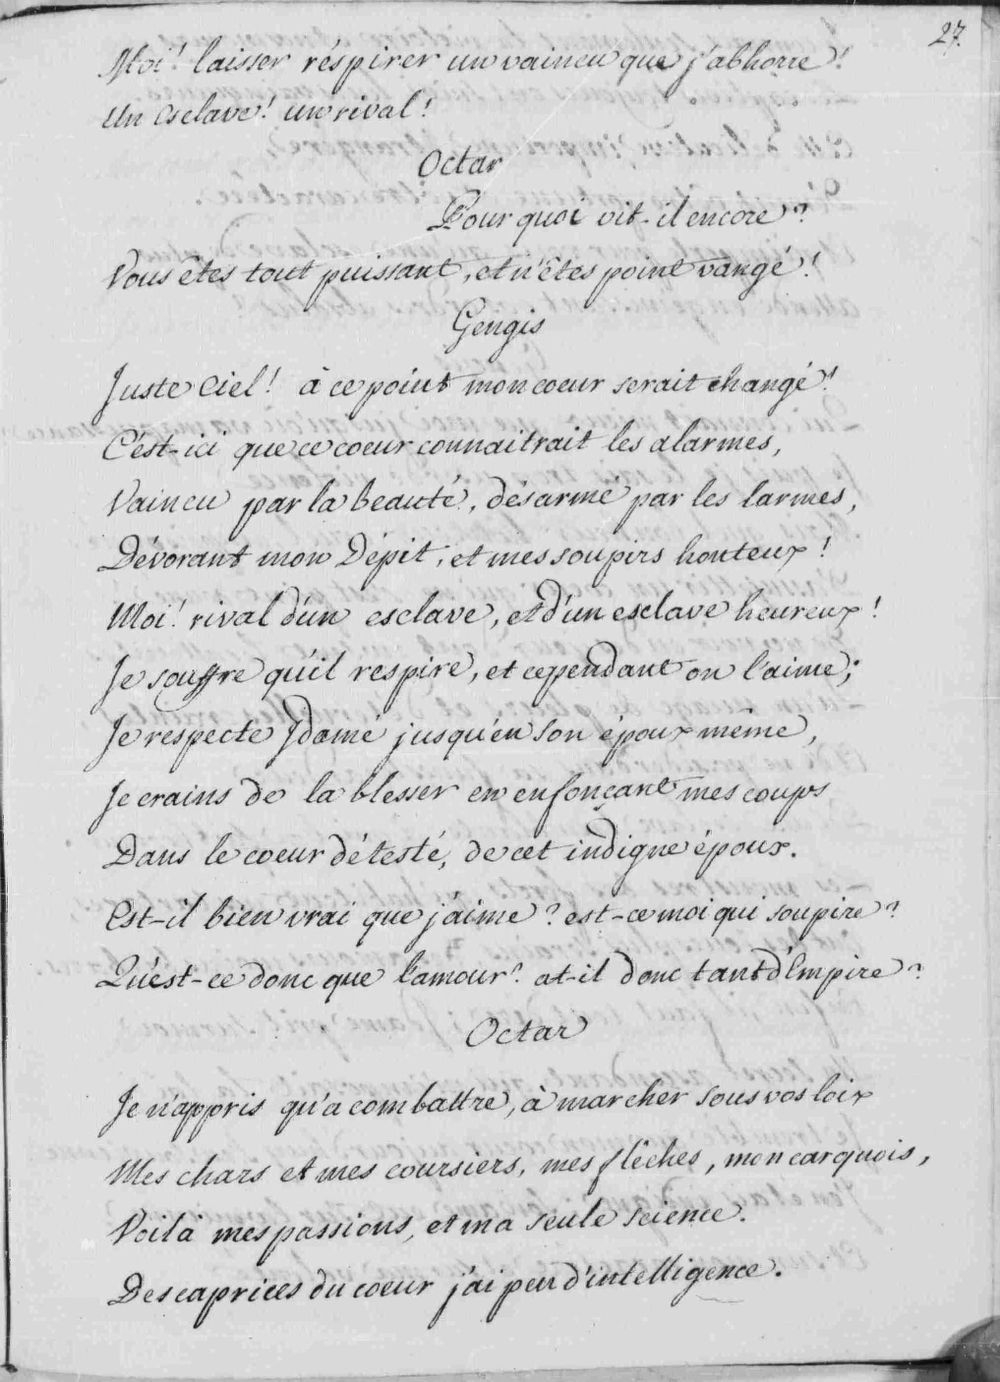 27.
Moi! laisser réspirer un vaincu que j'abhorre!
Un Esclave! un rival!
Octar
Pourquoi vit-il encore?
Vous êtes tout puissant, et n'êtes point vangé!
Gengis
Juste Ciel! à ce point mon coeur serait changé!
C'est-ici que ce coeur connaitrait les alarmes,
Vaincu par la beauté, désarmé par les larmes,
Dévorant mon Dépit, et mes soupirs honteux!
Moi! rival d'un esclave, et d'un esclave heureux!
Je souffre qu'il respire, et cependant on l'aime;
Je respecte Idamé jusqu'en son époux même,
Je crains de la blesser en enfonçant mes coups
Dans le coeur détesté, de cet indigne époux.
Est-il bien vrai que j'aime? est-ce moi qui soupire?
Qu'est-ce donc que l'amour? at-il donc tant d'Empire?
Octar
Je n'appris qu'a combattre, à marcher sous vos loix
Mes chars et mes coursiers, mes flêches, mon carquois,
Voila mes passions, et ma seule science.
Des caprices du coeur j'ai peu d'intelligence.